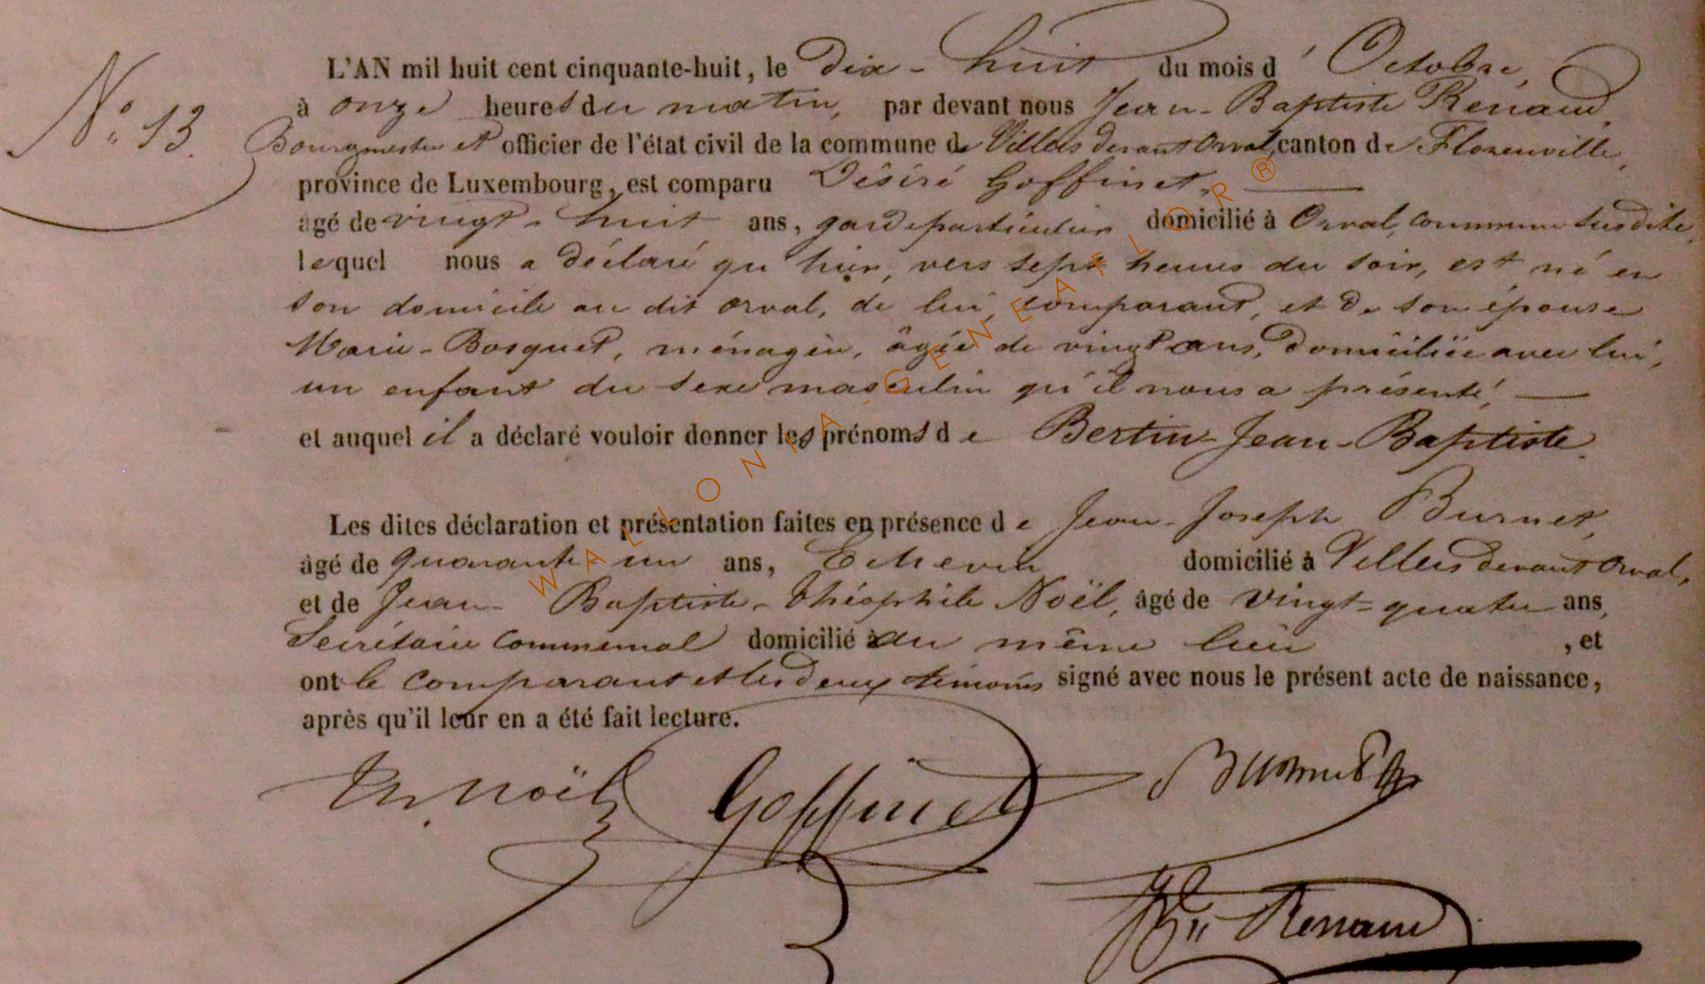 N° 13.
L'AN mil huit cent cinquante-huit, le Dix-huit du mois d'Octobre,
à onze heures du matin, par devant nous Jean-Baptiste Renaud,
Bourgmestre et officier de l'état civil de la commune de Villers devant Orval, canton de Florenville,
province de Luxembourg, est comparu Désiré Goffinet,
âgé de vingt-huit ans, garde particulier domicilié à Orval, commune susdite,
lequel nous a déclaré qu'hier, vers sept heures du soir, est né en
son domicile au dit orval, de lui, comparant, et de son épouse
Marie-Bosquet, ménagère, âgée de vingt ans, domiciliée avec lui,
un enfant du sexe masculin qu'il nous a présenté,
et auquel il a déclaré vouloir donner les prénoms de Bertin-Jean-Baptiste.
Les dites déclaration et présentation faites en présence de Jean-Joseph Burnet,
âgé de quarante un ans, Echevin domicilié à Villers devant Orval,
et de Jean-Baptiste-Théophile Noël, âgé de vingt-quatre ans,
Secrétaire communal domicilié à au même lieu, et
ont le comparant et les deux témoins signé avec nous le présent acte de naissance,
après qu'il leur en a été fait lecture.
Th. Noël Goffinet Burnet
Renaud
WALLONIA-GENEAFLOR®